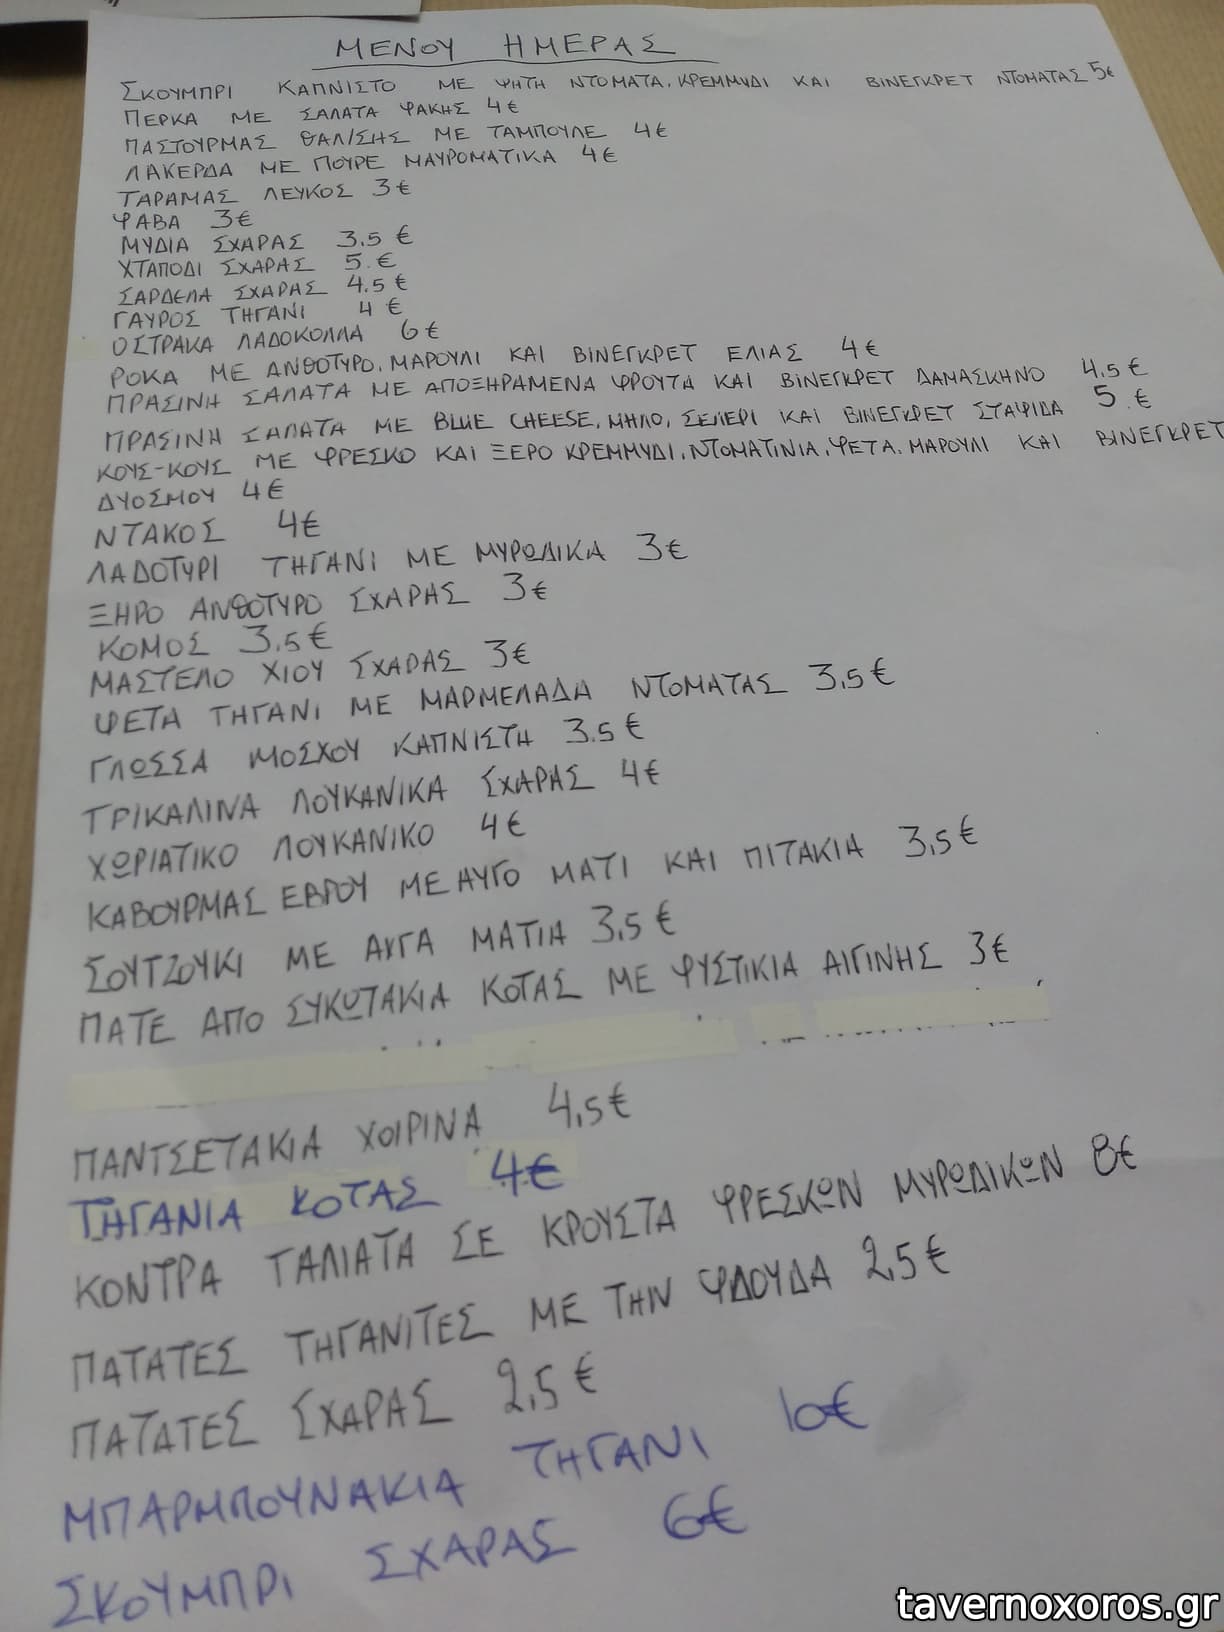 ΜΕΝΟΥ ΗΜΕΡΑΣ
ΣΚΟΥΜΠΡΙ ΚΑΠΝΙΣΤΟ ΜΕ ΨΗΤΗ ΝΤΟΜΑΤΑ, ΚΡΕΜΜΥΔΙ ΚΑΙ ΒΙΝΕΓΚΡΕΤ ΝΤΟΜΑΤΑΣ 5€
ΠΕΡΚΑ ΜΕ ΣΑΛΑΤΑ ΦΑΚΗΣ 4€
ΠΑΣΤΟΥΡΜΑΣ ΘΑΛ/ΣΗΣ ΜΕ ΤΑΜΠΟΥΛΕ 4€
ΛΑΚΕΡΔΑ ΜΕ ΠΟΥΡΕ ΜΑΥΡΟΜΑΤΙΚΑ 4€
ΤΑΡΑΜΑΣ ΛΕΥΚΟΣ 3€
ΦΑΒΑ 3€
ΜΥΔΙΑ ΣΧΑΡΑΣ 3.5 €
ΧΤΑΠΟΔΙ ΣΧΑΡΑΣ 5.€
ΣΑΡΔΕΛΑ ΣΧΑΡΑΣ 4.5€
ΓΑΥΡΟΣ ΤΗΓΑΝΙ 4 €
ΟΣΤΡΑΚΑ ΛΑΔΟΚΟΛΛΑ 6€
ΡΟΚΑ ΜΕ ΑΝΘΟΤΥΡΟ, ΜΑΡΟΥΛΙ ΚΑΙ ΒΙΝΕΓΚΡΕΤ ΕΛΙΑΣ 4€
ΠΡΑΣΙΝΗ ΣΑΛΑΤΑ ΜΕ ΑΠΟΞΗΡΑΜΕΝΑ ΦΡΟΥΤΑ ΚΑΙ ΒΙΝΕΓΚΡΕΤ ΔΑΜΑΣΚΗΝΟ 4,5€
ΠΡΑΣΙΝΗ ΣΑΛΑΤΑ ΜΕ BLUE CHEESE, ΜΗΛΟ, ΣΕΛΕΡΙ ΚΑΙ ΒΙΝΕΓΚΡΕΤ ΣΤΑΦΙΔΑ 5.€
ΚΟΥΣ-ΚΟΥΣ ΜΕ ΦΡΕΣΚΟ ΚΑΙ ΞΕΡΟ ΚΡΕΜΜΥΔΙ, ΝΤΟΜΑΤΙΝΙΑ, ΦΕΤΑ, ΜΑΡΟΥΛΙ ΚΑΙ ΒΙΝΕΓΚΡΕΤ
ΔΥΟΣΜΟΥ 4€
ΝΤΑΚΟΣ 4€
ΛΑΔΟΤΥΡΙ ΤΗΓΑΝΙ ΜΕ ΜΥΡΩΔΙΚΑ 3€
ΞΗΡΟ ΑΝΘΟΤΥΡΟ ΣΧΑΡΑΣ 3€
ΚΟΜΟΣ 3.5€
ΜΑΣΤΕΛΟ ΧΙΟΥ ΣΧΑΡΑΣ 3€
ΦΕΤΑ ΤΗΓΑΝΙ ΜΕ ΜΑΡΜΕΛΑΔΑ ΝΤΟΜΑΤΑΣ 3,5€
ΓΛΩΣΣΑ ΜΟΣΧΟΥ ΚΑΠΝΙΣΤΗ 3.5€
ΤΡΙΚΑΛΙΝΑ ΛΟΥΚΑΝΙΚΑ ΣΧΑΡΑΣ 4€
ΧΩΡΙΑΤΙΚΟ ΛΟΥΚΑΝΙΚΟ 4€
ΚΑΒΟΥΡΜΑΣ ΕΒΡΟΥ ΜΕ ΑΥΓΟ ΜΑΤΙ ΚΑΙ ΠΙΤΑΚΙΑ 3,5€
ΣΟΥΤΖΟΥΚΙ ΜΕ ΑΥΓΑ ΜΑΤΙΑ 3,5€
ΠΑΤΕ ΑΠΟ ΣΥΚΩΤΑΚΙΑ ΚΟΤΑΣ ΜΕ ΦΥΣΤΙΚΙΑ ΑΙΓΙΝΗΣ 3€
ΠΑΝΤΣΕΤΑΚΙΑ ΧΟΙΡΙΝΑ 4,5€
ΤΗΓΑΝΙΑ ΚΟΤΑΣ 4€
ΚΟΝΤΡΑ ΤΑΛΙΑΤΑ ΣΕ ΚΡΟΥΣΤΑ ΦΡΕΣΚΩΝ ΜΥΡΩΔΙΚΩΝ 8€
ΠΑΤΑΤΕΣ ΤΗΓΑΝΙΤΕΣ ΜΕ ΤΗΝ ΦΛΟΥΔΑ 2,5€
ΠΑΤΑΤΕΣ ΣΧΑΡΑΣ 2,5€
ΜΠΑΡΜΠΟΥΝΑΚΙΑ ΤΗΓΑΝΙ 10€
ΣΚΟΥΜΠΡΙ ΣΧΑΡΑΣ 6€
tavernoxoros.gr